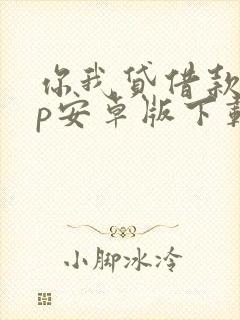 你我贷借款
p安卓版下载
小脚冰冷